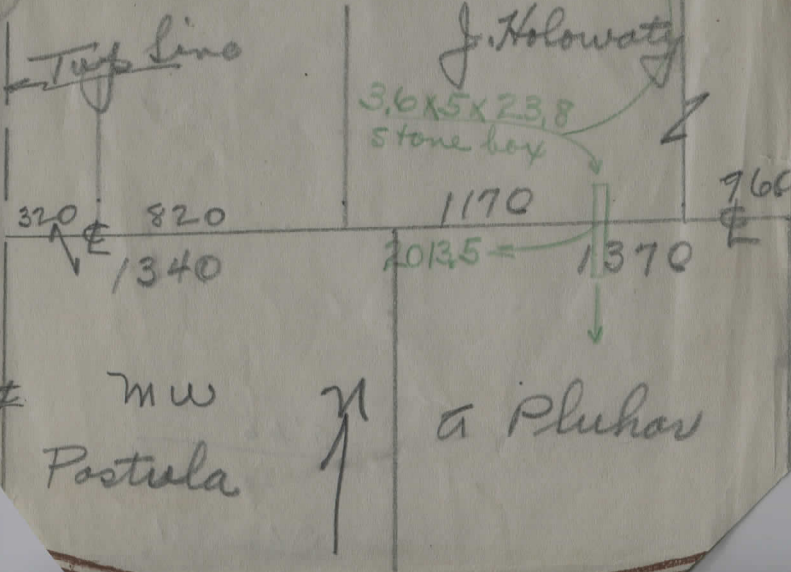 Twp Line
J. Holowaty
3,6x5x23,8
stone box
320 ℄ 820
1170
960
℄
1340
2013,5
1370
MW
Postula
N
a Pluhar